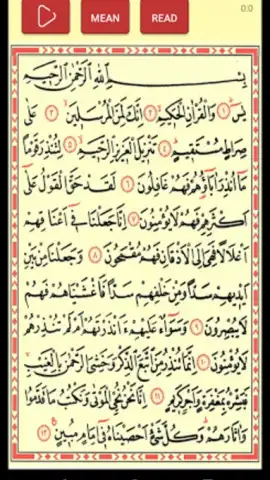 MEAN
READ
0:0
بِسْمِ اللّٰهِ الرَّحْمٰنِ الرَّحِيمِ
يٰسٓ ۝١ وَالْقُرْاٰنِ الْحَكِيمِ ۝٢ اِنَّكَ لَمِنَ الْمُرْسَلِينَ ۝٣ عَلٰى
صِرَاطٍ مُسْتَقِيمٍ ۝٤ تَنْزِيلَ الْعَزِيزِ الرَّحِيمِ ۝٥ لِتُنْذِرَ قَوْمًا
مَٓا اُنْذِرَ اٰبَٓاؤُ۬هُمْ فَهُمْ غَافِلُونَ ۝٦ لَقَدْ حَقَّ الْقَوْلُ عَلٰٓى
اَكْثَرِهِمْ فَهُمْ لَا يُؤْمِنُونَ ۝٧ اِنَّا جَعَلْنَا فٓي اَعْنَاقِهِمْ
اَغْلَالًا فَهِيَ اِلَى الْاَذْقَانِ فَهُمْ مُقْمَحُونَ ۝٨ وَجَعَلْنَا مِنْ بَيْنِ
اَيْدِيهِمْ سَدًّا وَمِنْ خَلْفِهِمْ سَدًّا فَاَغْشَيْنَاهُمْ فَهُمْ
لَا يُبْصِرُونَ ۝٩ وَسَوَٓاءٌ عَلَيْهِمْ ءَاَنْذَرْتَهُمْ اَمْ لَمْ تُنْذِرْهُمْ
لَا يُؤْمِنُونَ ۝١٠ اِنَّمَا تُنْذِرُ مَنِ اتَّبَعَ الذِّكْرَ وَخَشِيَ الرَّحْمٰنَ بِالْغَيْبِ
فَبَشِّرْهُ بِمَغْفِرَةٍ وَاَجْرٍ كَرِيمٍ ۝١١ اِنَّا نَحْنُ نُحْيِي الْمَوْتٰى وَنَكْتُبُ مَا قَدَّمُوا
وَاٰثَارَهُمْ وَكُلَّ شَيْءٍ اَحْصَيْنَاهُ فٓي اِمَامٍ مُبِينٍ ۝١٢